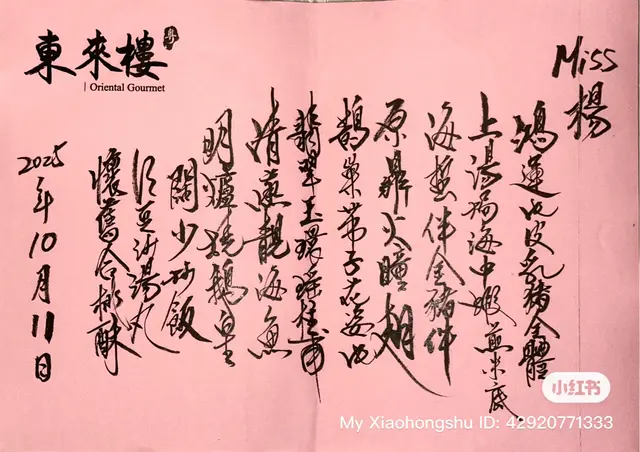 東來樓
Oriental Gourmet
Miss 楊
鴻運化皮乳豬全體
上湯焗海中蝦煎米底
海蜇伴金豬件
原鼎火瞳翅
鵲巢帶子花姿
翡翠玉環瑤柱甫
清蒸靚海魚
明爐燒鵝皇
闊少炒飯
紅豆沙湯丸
懷舊合桃酥
2025年10月11日
小红书
My Xiaohongshu ID: 42920771333